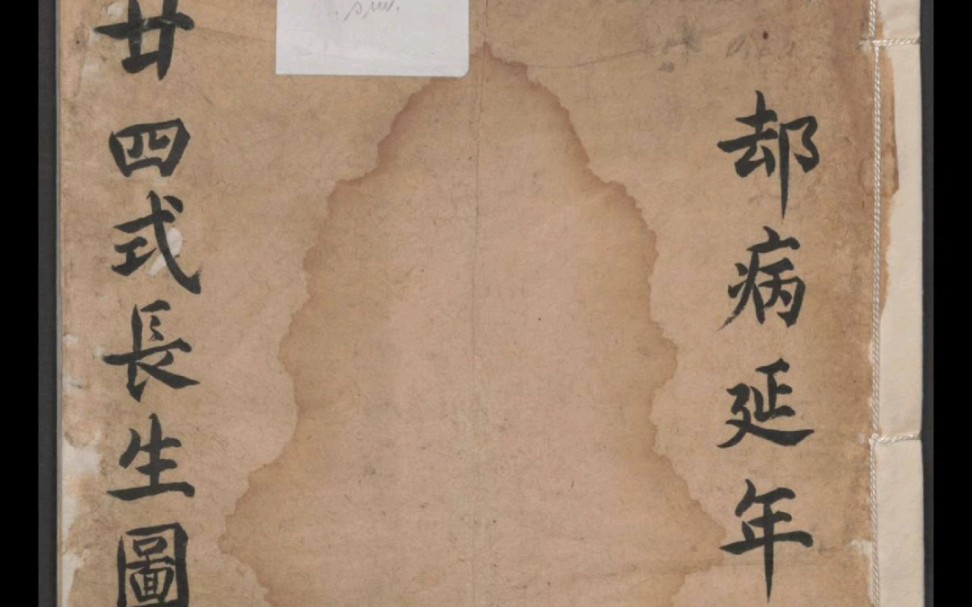 却病延年
廿四式長生圖